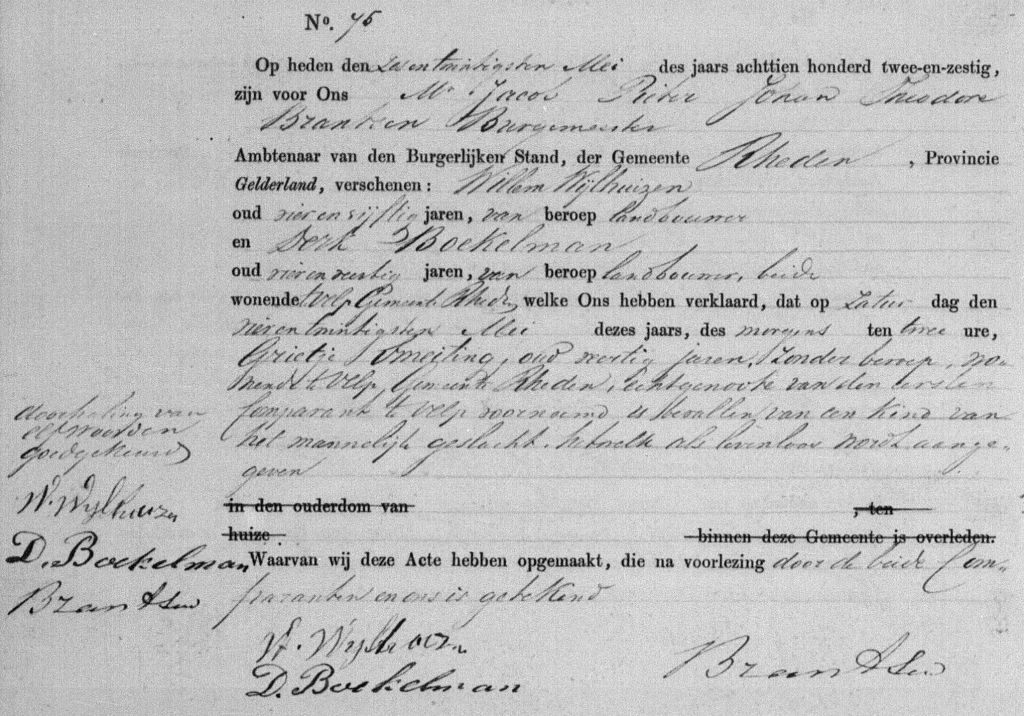 No. 75
Op heden den zesentwintigsten Mei des jaars achttien honderd twee-en-zestig,
zijn voor Ons Mr Jacob Pieter Johan Theodore
Brantsen Burgemeester
Ambtenaar van den Burgerlijken Stand, der Gemeente Rheden, Provincie
Gelderland, verschenen: Willem Wijlhuizen
oud vier en vijftig jaren, van beroep landbouwer
en Derk Boekelman
oud vier en veertig jaren, van beroep landbouwer, beide
wonende te Velp Gemeente Rheden, welke Ons hebben verklaard, dat op Zatur dag den
vier en twintigsten Mei dezes jaars, des morgens ten twee ure,
Grietje Smeiting, oud veertig jaren, zonder beroep, wo-
nende te Velp, Gemeente Rheden, Echtgenoote van den eersten
Comparant te Velp voornoemd is bevallen van een kind van
het mannelijk geslacht, hetwelk als levenloos wordt aange-
geven
in den ouderdom van , ten
huize binnen deze Gemeente is overleden.
Waarvan wij deze Acte hebben opgemaakt, die na voorlezing door de beide Com-
paranten en ons is getekend
W. Wylhuizen
D. Boekelman
Brantsen
doorhaling van
elf woorden
goedgekeurd
W. Wylhuizen
D. Boekelman
Brantsen